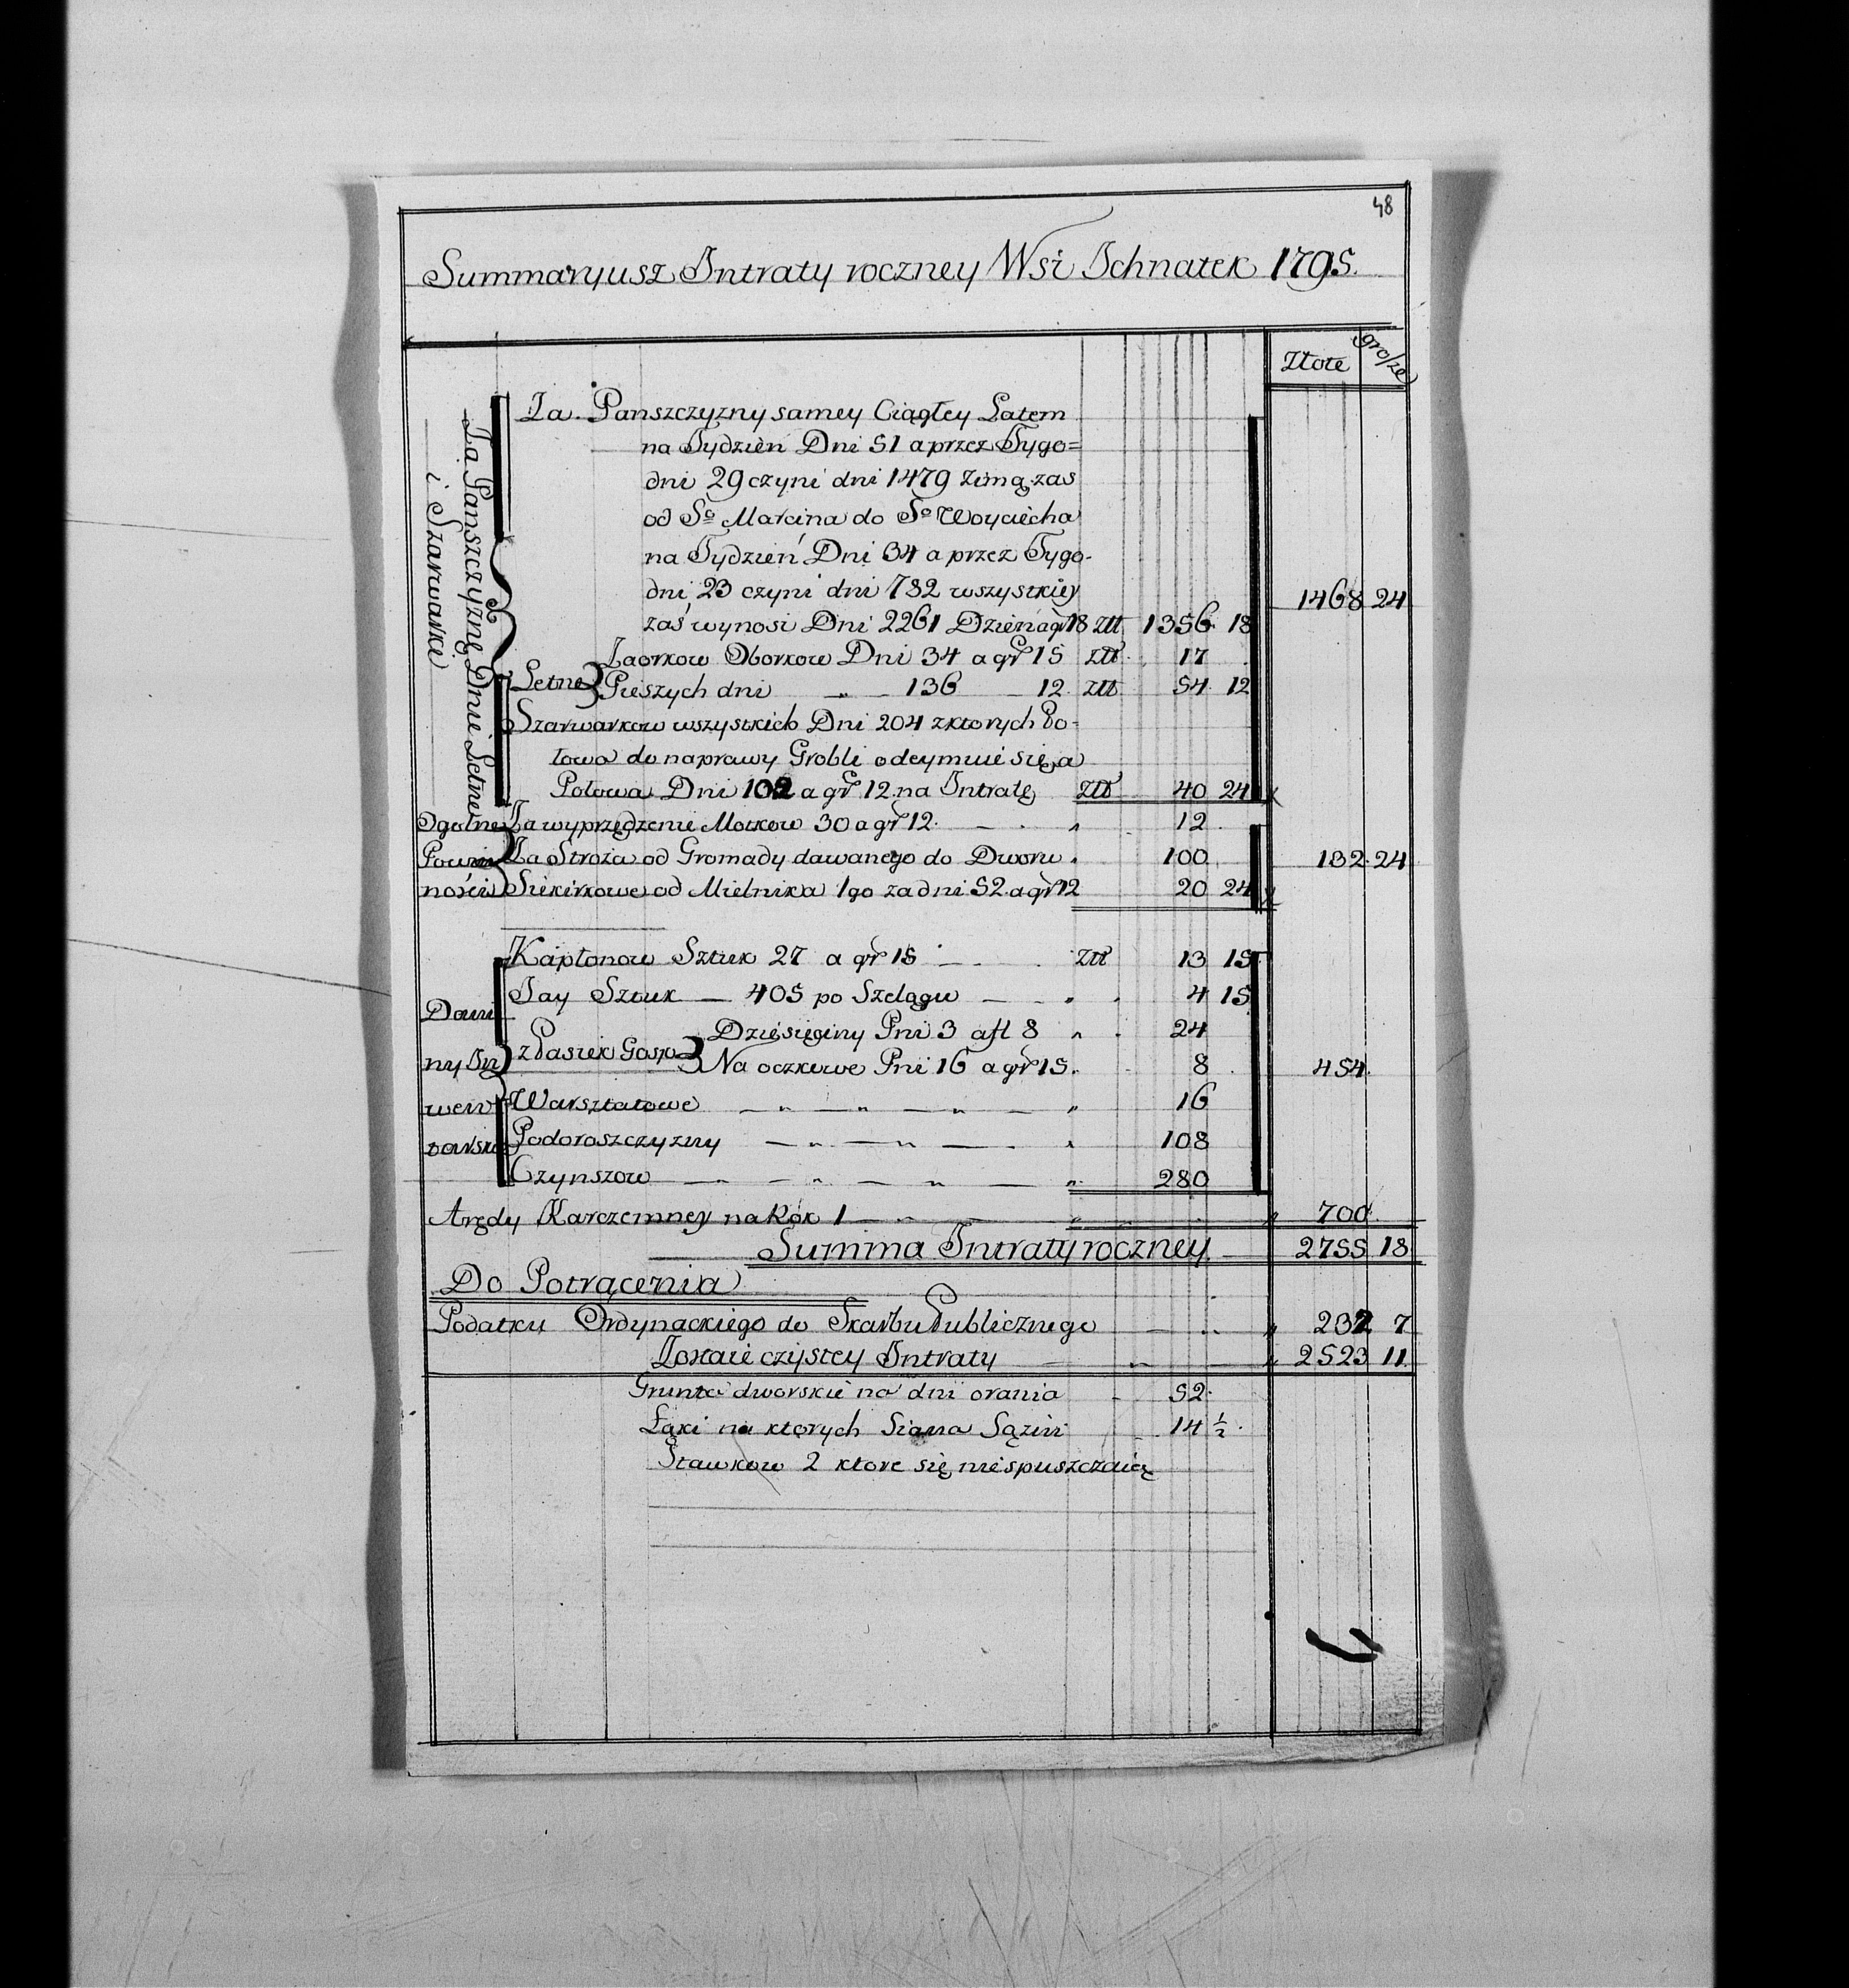 48
Summaryusz Intraty roczney Wsi Ichnatek 1795.
Złote grosze
Za Panszczyznę Dnie Letne
i Szarwarki
Za Panszczyzny samey Ciągłey Latem
na Tydzień Dni 51 a przez Tygo=
dni 29 czyni dni 1479 Zimą zas
od Sº Marcina do Sº Woyciecha
na Tydzień Dni 34 a przez Tygo-
dni 23 czyni dni 782 wszystkiey
zaś wynosi Dni 2261 Dzień a gr 18 złł 1356 18
1468 24
Zaorkow Oborkow Dni 34 a gr 15 złł 17
Letne Pieszych dni „ — 136 — 12 złł 54 12
Szarwarkow wszystkich Dni 204 zktorych Po=
łowa do naprawy Grobli odeymuie się a
Połowa Dni 102 a gr 12 na Intratę złł 40 24
Ogolne Za wyprzędzenie Motkow 30 a gr 12 — „ 12
Powin Za Stroża od Gromady dawanego do Dworu „ 100 132 24
ności Siekirkowe od Mielnika 1go za dni 52 a gr 12 20 24
Kapłonow Sztuk 27 a gr 15 — złł 13 15
Jay Sztuk — 405 po Szelągu — „ 4 15
Dani
Dziesięciny Pni 3 a fl 8 „ 24
ny In z Pasiek Gosp Na oczkowe Pni 16 a gr 15. 8 454
wen Warsztatowe — „ — „ — „ — „ 16
tarskie Podoroszczyzny — „ — „ — „ 108
Czynszow — „ — „ — „ — „ 280
Arędy Karczemney na Rok 1 — „ — „ 700
Summa Intraty roczney 2755 18
Do Potrącenia
Podatku Ordynackiego do Skarbu Publicznego — „ 232 7
Zostaie czystey Intraty — „ — „ 2523 11
Grunta dworskie na dni orania - 52
Łąki na ktorych Siana Sążni 14 ½
Stawkow 2 ktore się niespuszczaią